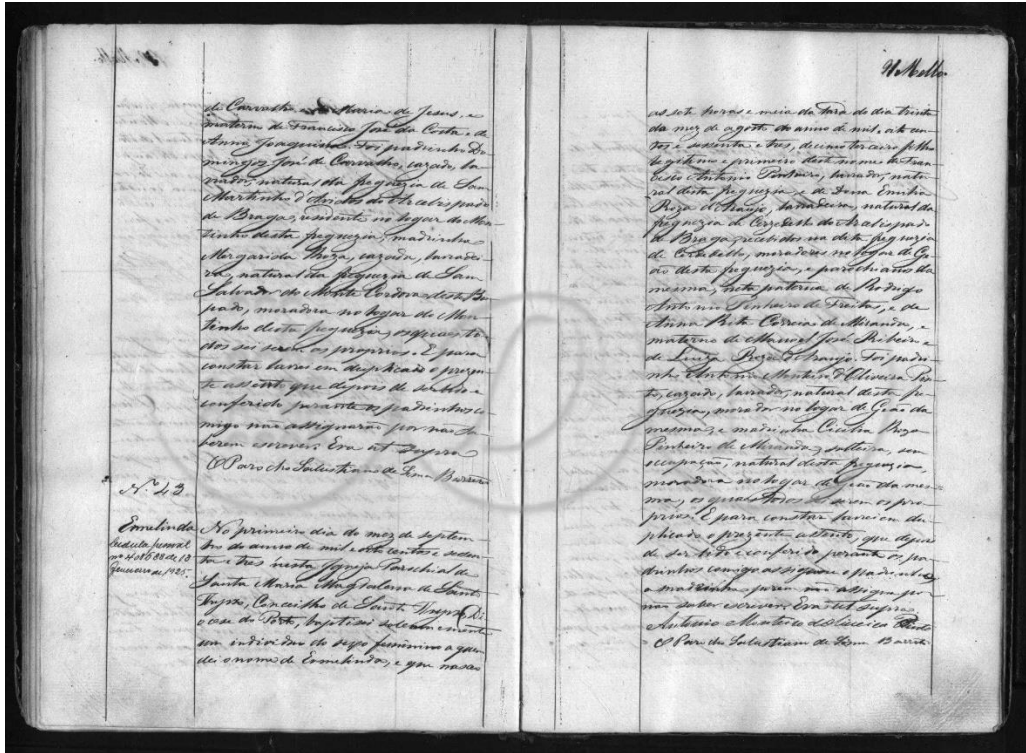 de Carvalho e Maria de Jesus, e
materna de Francisco José da Costa e de
Anna Joaquina. Foi padrinho Do-
mingos José de Carvalho, cazado, la-
vrador, natural da freguezia de Sam
Martinho d'
de Braga, rezidente no logar do Mon-
tinho desta freguezia, madrinha
Margarida Roza, cazada, lavradei-
ra, natural da freguezia de Sam
Salvador do Monte Cordova deste Bis-
pado, moradora no logar do Mon-
tinho desta freguezia, os quaes to-
dos sei serem os proprios. E para
constar lavrei em duplicado o prezen-
te assento, que depois de ser lido e
conferido perante os padrinhos co-
migo não assignarão por não sa-
berem escrever. Era ut supra
O Parocho Salustiano de
Nº 43
Ermelinda
Cedula pessoal
nº de 13
Fevereiro de 1925.
No primeiro dia do mez de septem-
bro do anno de mil e oito centos e sessen-
ta e tres nesta Igreja Parochial de
Santa Maria Magdalena de Santo
Thyrso, Concelho de Santo Thyrso, Di-
ocese do Porto, baptisei solemnemente
um individuo do sexo feminino a quem
dei o nome de Ermelinda, e que nasceo
91 Mello
as sete horas e meia da tarde do dia trinta
do mez de agosto do anno de mil e oito cen-
tos e sessenta e tres, decimo terceiro filho
legitimo e primeiro deste nome de Fran-
cisco Antonio Pinheiro, lavrador, natu-
ral desta freguezia, e de Dona Emilia
Roza d'Araujo, lavradeira, natural da
freguezia de do Arcebispado
de Braga, recebidos na dita freguezia
de moradores no logar de Ge-
ão desta freguezia, e parochianos da
mesma, neta paterna de Rodrigo
Antonio Pinheiro de Freitas, e de
Anna Rita Correia de Miranda, e
materna de Manoel José Ribeiro e
de Luiza Roza d'Araujo. Foi padri-
nho Antonio Monteiro d'Oliveira Pin-
to, cazado, lavrador, natural desta fre-
guezia, morador no logar de Geão da
mesma, e madrinha Cicilia Roza
Pinheiro de Miranda, solteira, sem
occupação, natural desta freguezia,
moradora no logar de Geão da mes-
ma, os quaes todos sei serem os pro-
prios. E para constar lavrei em du-
plicado o prezente assento, que depois
de ser lido e conferido perante os pa-
drinhos comigo assignou o padrinho
a madrinha porem não assigna por
não saber escrever. Era ut supra
Antonio Monteiro de Oliveira Pinto
O Parocho Salustiano de